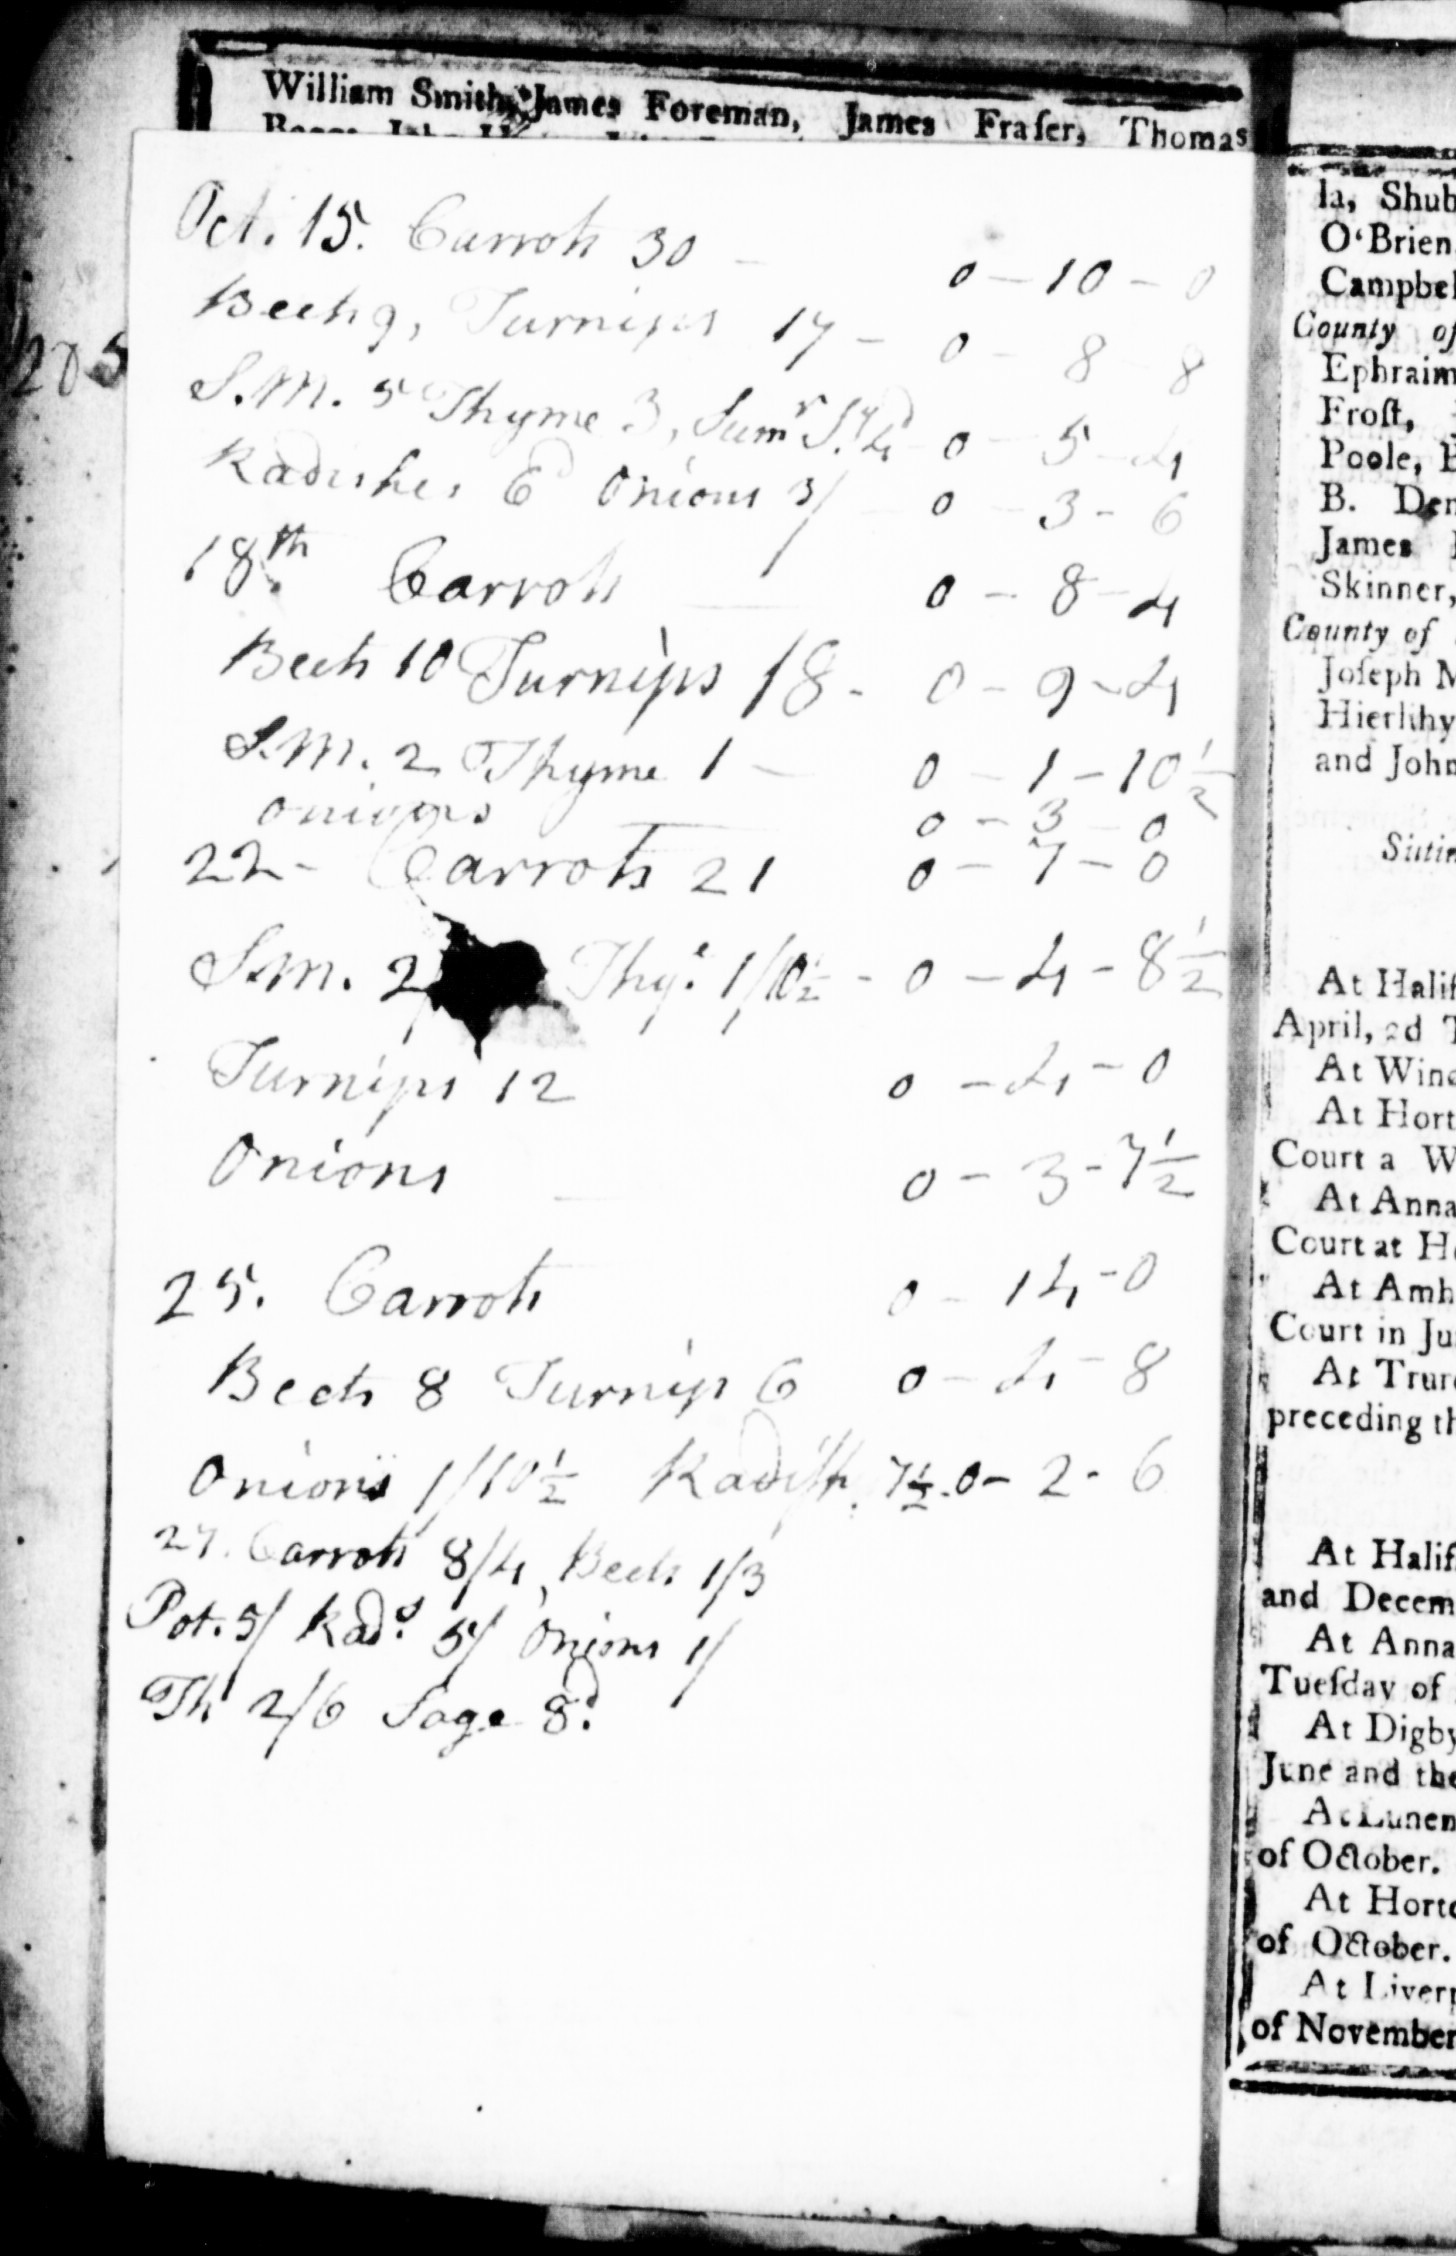 William Smith, James Foreman, James Fraſer, Thomas
Oct. 15. Carrots 30 - 0 - 10 - 0
Beets 9, Turnips 17 - 0 - 8 - 8
S.M. 5 Thyme 3, Sumr S.y 4d 0 - 5 - 4
Radishes 6d Onions 3/ - 0 - 3 - 6
18th. Carrots 0 - 8 - 4
Beets 10 Turnips 18 - 0 - 9 - 4
S.M. 2 Thyme 1 - 0 - 1 - 10 1/2
Onions 0 - 3 - 0
22 - Carrots 21 0 - 7 - 0
S.M. 2/ Thy.e 1/10 1/2 - 0 - 4 - 8 1/2
Turnips 12 0 - 4 - 0
Onions 0 - 3 - 7 1/2
25. Carrots 0 - 14 - 0
Beets 8 Turnips 6 0 - 4 - 8
Onions 1/10 1/2 Radish. 7 1/2 - 0 - 2 - 6
27. Carrots 8/4, Beets 1/3
Pot. 5/ Rad.s 5/ Onions 1/
Th 2/6 Sage 8d.
205
la, Shub
O'Brien
Campbel
County of
Ephraim
Froſt,
Poole, B
B. Den
James
Skinner,
County of
Joſeph M
Hierlihy
and John
Sittin
At Halif
April, 2d T
At Wind
At Hort
Court a W
At Anna
Court at Ho
At Amh
Court in Ju
At Truro
preceding th
At Halif
and Decem
At Anna
Tueſday of
At Digby
June and the
At Lunen
of October.
At Horto
of October.
At Liverp
of November